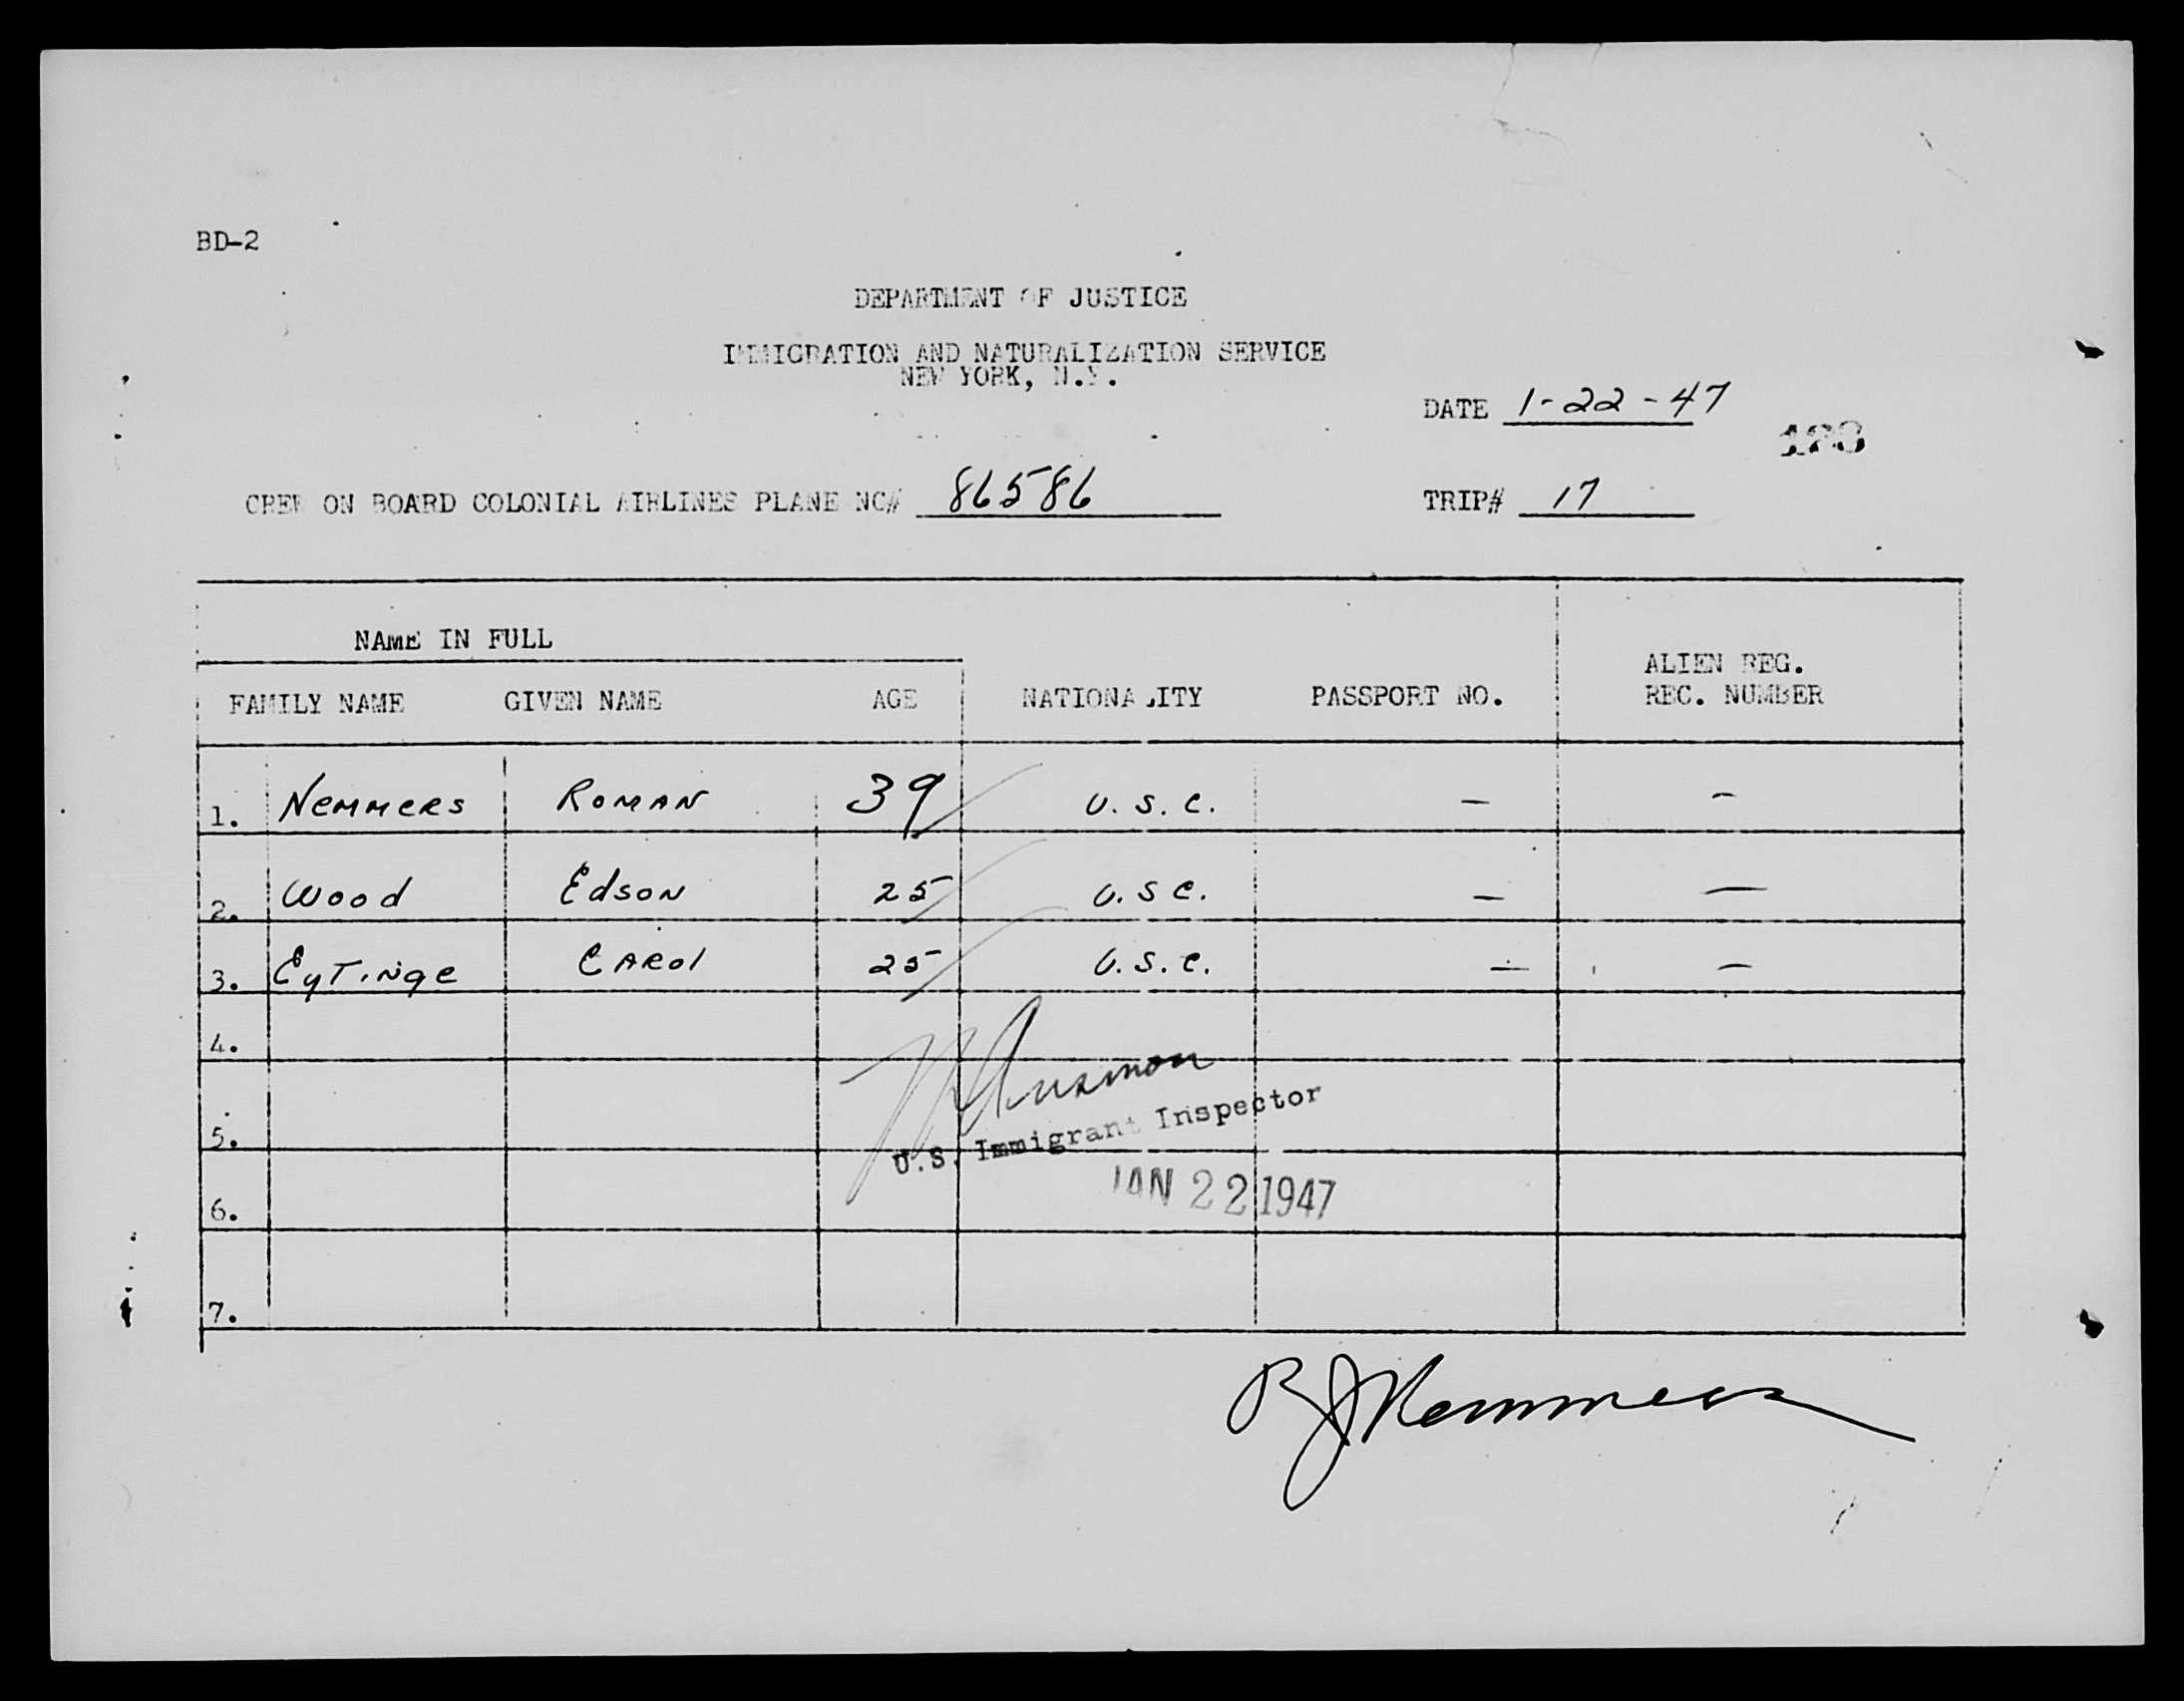 BD-2
DEPARTMENT OF JUSTICE
IMMIGRATION AND NATURALIZATION SERVICE
NEW YORK, N.Y.
DATE 1-22-47
CREW ON BOARD COLONIAL AIRLINES PLANE NC# 86586 TRIP# 17
NAME IN FULL
ALIEN REG.
FAMILY NAME GIVEN NAME AGE NATIONALITY PASSPORT NO. REC. NUMBER
1. Nemmers Roman 39 U.S.C. - -
2. Wood Edson 25 U.S C. - -
3. Eytinge Carol 25 U.S.C. - -
4.
5.
U.S. Immigrant Inspector
JAN 22 1947
6.
7.
R J Nemmers